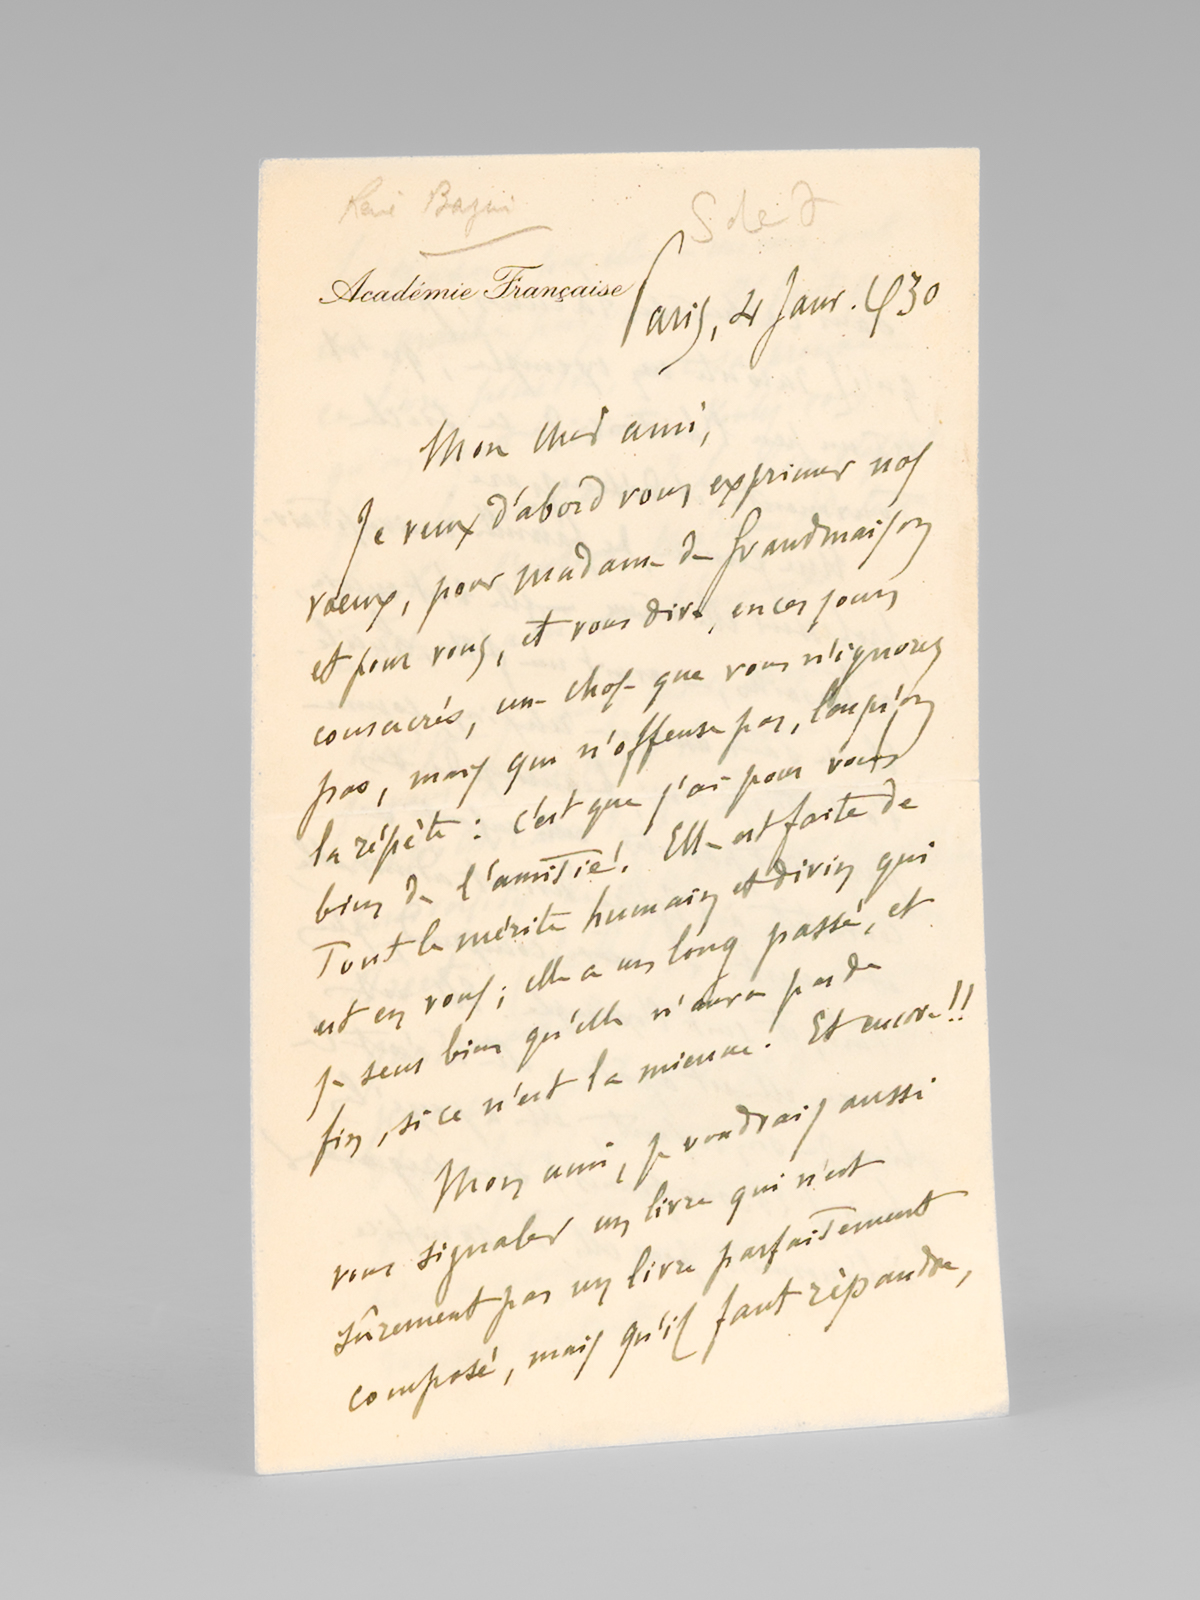 René Bazin
Académie Française
Paris, 4 Janv. 1930
Mon cher ami,
Je veux d'abord vous exprimer nos
vœux, pour madame de Grandmaison
et pour vous, et vous dire, en ces jours
consacrés, une chose que vous n'ignorez
pas, mais qui n'offense pas, lorsqu'on
la répète : c'est que j'ai pour vous
bien de l'amitié. Elle est faite de
Tout le mérite humain et divin qui
est en vous ; elle a un long passé, et
je sens bien qu'elle n'aura pas de
fin, si ce n'est la mienne. Et encore !!
Mon ami, je voudrais aussi
vous signaler un livre qui n'est
sûrement pas un livre parfaitement
composé, mais qu'il faut répandre,